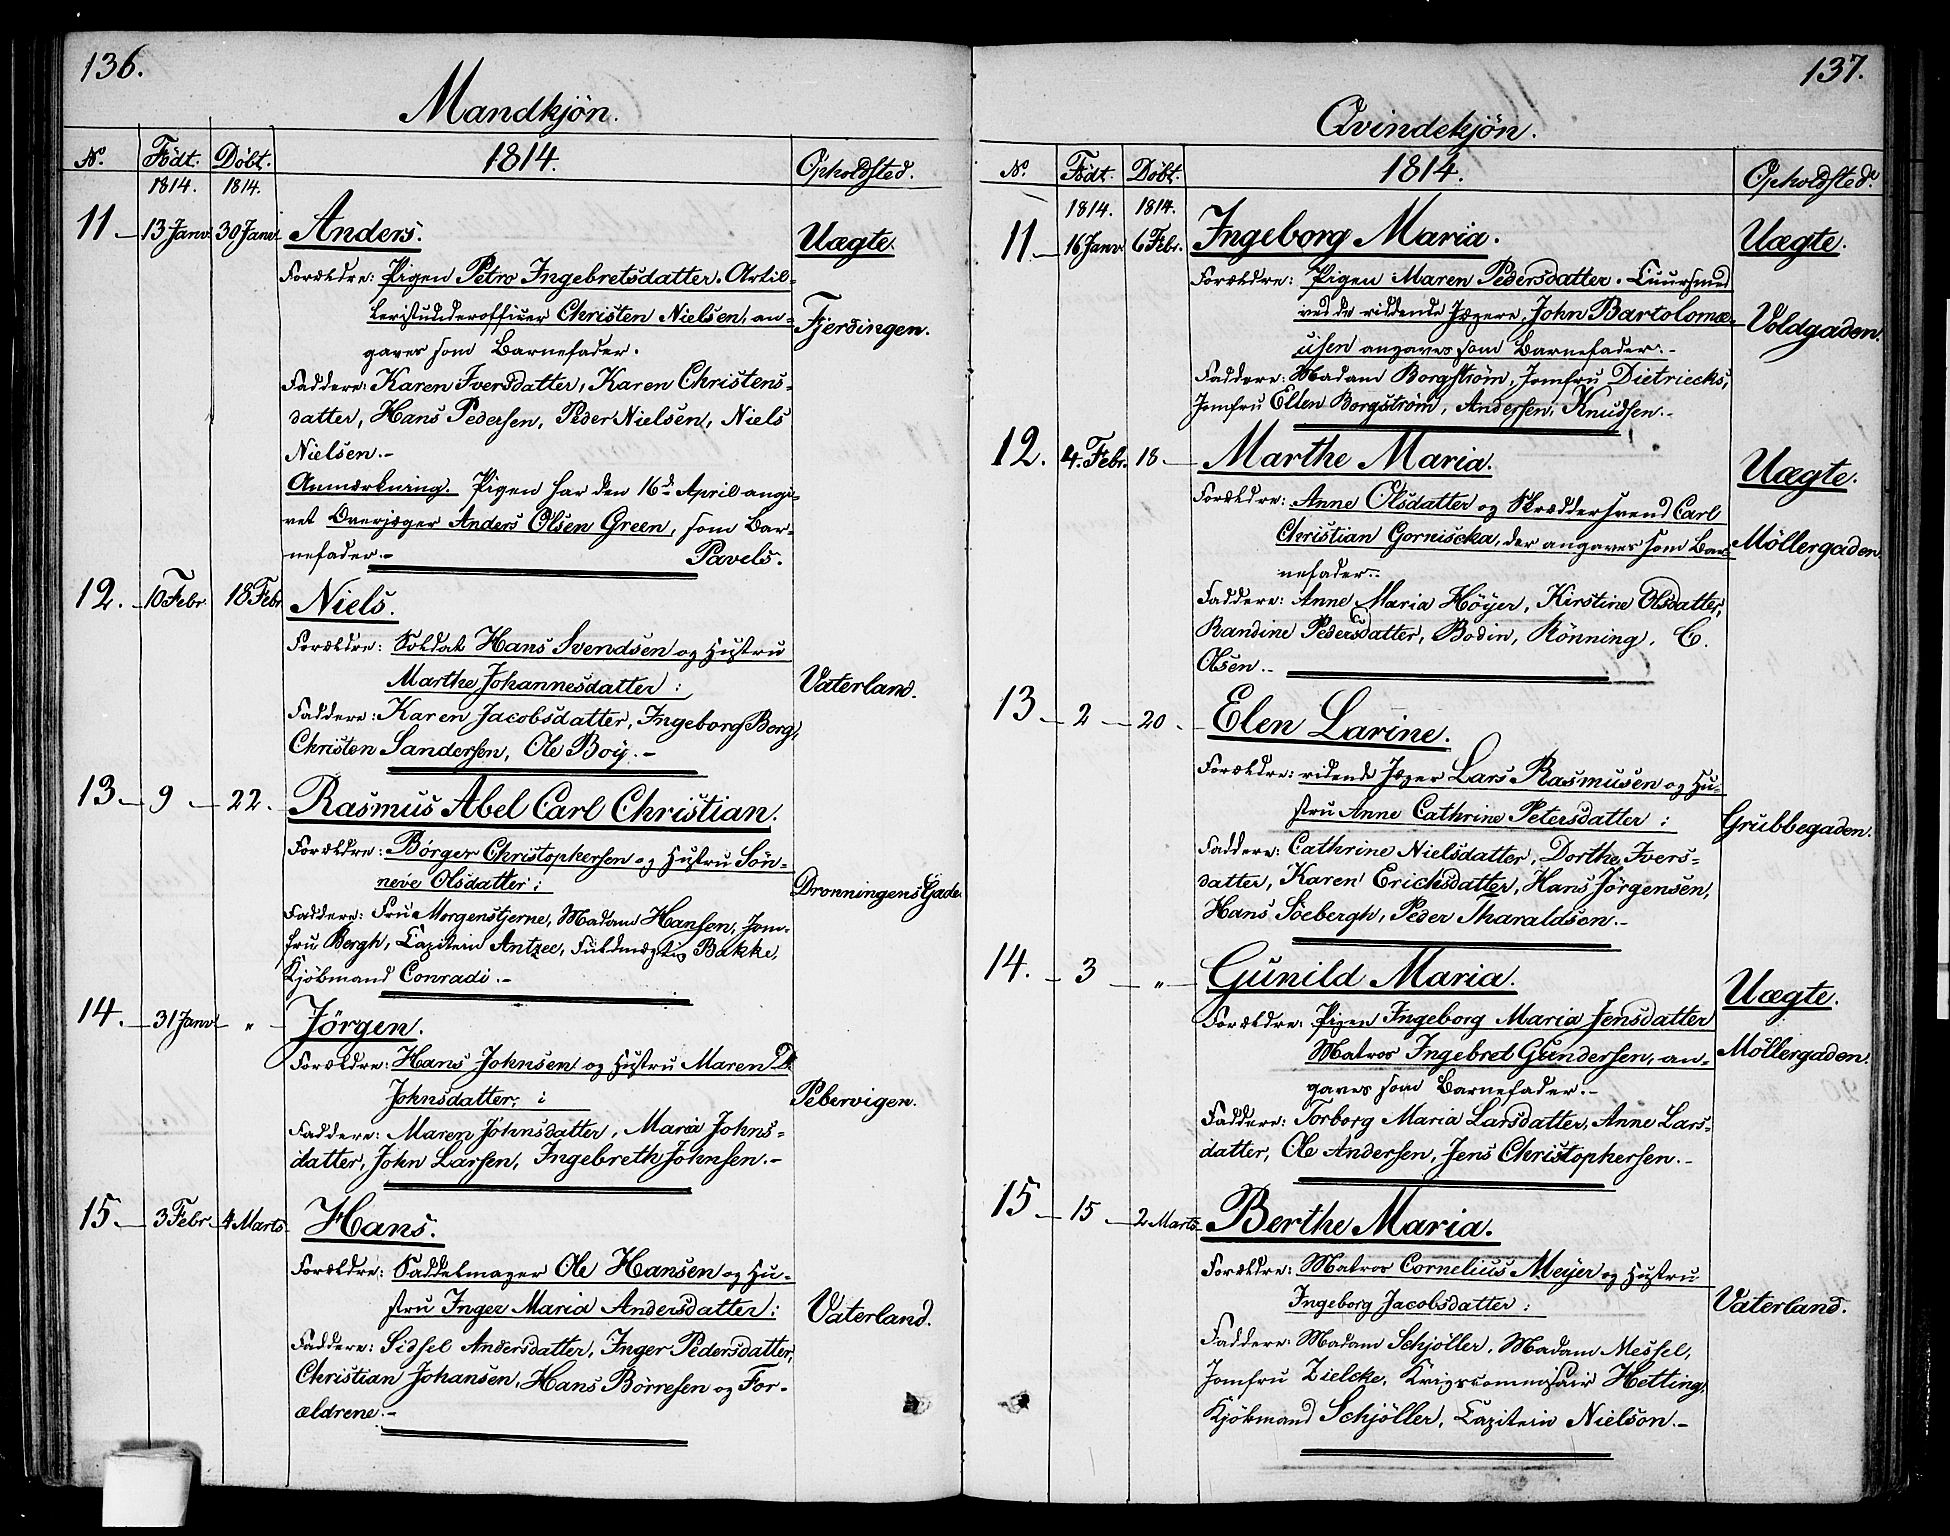 136.
Mandkjön.
No. Födt. Döbt. 1814. Opholdsted.
1814. 1814.
11 13 Janv. 30 Janv. Anders. Uægte.
Forældre: Pigen Petro Ingebretsdatter. Artil-
leriunderofficer Christen Nielsen, an- Fjerdingen.
gaves som Barnefader.
Faddere: Karen Iversdatter, Karen Christens-
datter, Hans Pedersen, Peder Nielsen, Niels
Nielsen.-
Anmærkning. Pigen har den 16de April angi-
vet Overjæger Anders Olsen Green, som Bar-
nefader.- Pavels.
12. 10 Febr. 18 Febr. Niels.
Forældre: Soldat Hans Svendsen og Hustru
Marthe Johannesdatter: Vaterland.
Faddere: Karen Jacobsdatter, Ingeborg Borg,
Christen Sandersen, Ole Boy.-
13 9 22. Rasmus Abel Carl Christian.
Forældre: Börger Christophersen og Hustru Sön-
neve Olsdatter: Dronningens Gade.
Faddere: Frue Morgenstjerne, Madam Hansen, Jom-
fru Bergh, Capitein Antzee, Fuldmægtig Bakke,
Kjöbmand Conradi.-
14. 31 Janv. " Jörgen.
Forældre: Hans Johnsen og Hustru Maren D.
Johnsdatter: Pebervigen.
Faddere: Maren Johnsdatter, Maria Johns-
datter, John Larsen, Ingebreth Johnsen.-
15. 3 Febr. 4 Marts Hans.
Forældre: Saddelmager Ole Hansen og Hu-
stru Inger Maria Andersdatter: Vaterland.
Faddere: Sidsel Andersdatter, Inger Pedersdatter,
Christian Johansen, Hans Börresen og For-
ældrene.-
137.
Qvindekjön.
No. Födt. Döbt. 1814. Opholdsted.
1814. 1814.
11 16 Janv. 6 Febr. Ingeborg Maria. Uægte.
Forældre: Pigen Maren Pedersdatter. Cuursmed
ved de riddende Jægere, John Bartolomæ- Voldgaden.
usen angaves som Barnefader.-
Faddere: Madam Borgström, Jomfru Dietriecks,
Jomfru Ellen Borgström, Andersen, Knudsen.-
12. 4. Febr. 18 Marthe Maria. Uægte.
Forældre: Anne Olsdatter og Skræddersvend Carl
Christian Gornischka, der angaves som Bar- Möllergaden
nefader.-
Faddere: Anne Maria Höyer, Kirstine Olsdatter,
Randine Pedersdatter, Bodin, Rönning, C.
Olsen.-
13 2 20. Elen Larine.
Forældre: ridende Jæger Lars Rasmusen og Hu-
stru Anne Cathrine Petersdatter: Grubbegaden.
Faddere: Cathrine Nielsdatter, Dorthe Ivers-
datter, Karen Ericksdatter, Hans Jörgensen,
Hans Söebergh, Peder Tharaldsen.-
14. 3 " Gunild Maria. Uægte.
Forældre: Pigen Ingeborg Maria Jensdatter
Matros Ingebret Gundersen, an- Möllergaden.
gaves som Barnefader.-
Faddere: Torborg Maria Larsdatter, Anne Lars-
datter, Ole Andersen, Jens Christophersen.-
15 15 2 Marts Berthe Maria.
Forældre: Matros Cornelius Meyer og Hustru
Ingeborg Jacobsdatter: Vaterland.
Faddere: Madam Schjöller, Madam Messel,
Jomfru Zielcke, Krigscommissair Hetting,
Kjöbmand Schjöller, Capitein Nielson.-